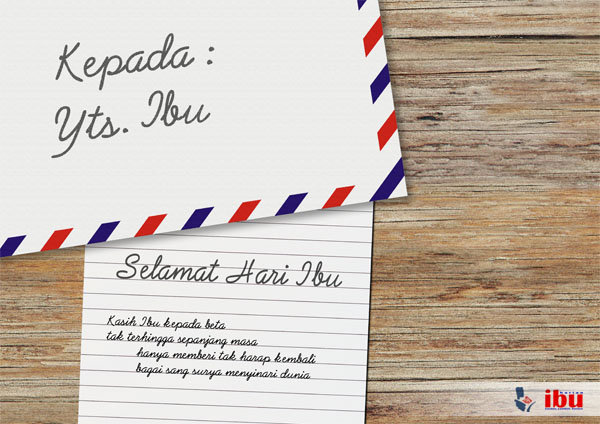 Kepada :
Yts. Ibu
Selamat Hari Ibu
Kasih Ibu kepada beta
tak terhingga sepanjang masa
hanya memberi tak harap kembali
bagai sang surya menyinari dunia
ibu